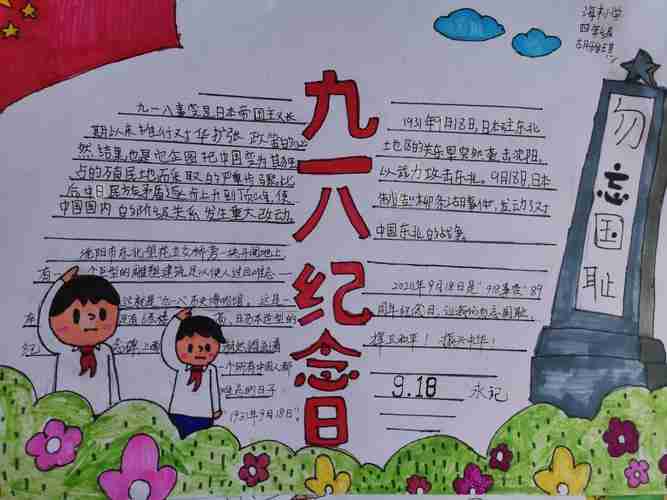 四年级
九一八纪念日
勿忘国耻
九一八事变是日本帝国主义长
期以来推行对华扩张政策的必
然结果也是企图把中国变为其独
占的殖民地而采取的重要步骤
后中日民族矛盾逐步上升到顶
中国国内的阶级关系发生重大改动
沈阳市东北望花立交桥旁一块开阔地上
有一个巨型的雕塑建筑足以使人过目难忘
这就是九一八历史博物馆,这是一
一个所有中国人都
难忘的日子
"1931年9月18日"
1931年9月18日,日本驻东北
地区的关东军突然袭击沈阳,
以武力攻击东北。9月18日,日本
制造柳条湖事件,发动了对
中国东北的战争。
2020年9月18日是"九一八事变"89
周年纪念日,让我们勿忘国耻,
捍卫和平!振兴中华!
9.18 永记